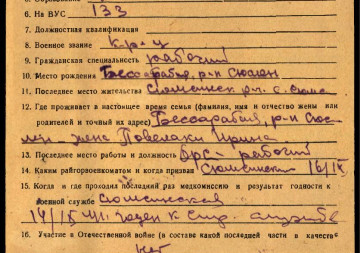 6. На ВУС 133
7. Должностная квалификация
8. Военное звание кр-ц
9. Гражданская специальность рабочий
10. Место рождения Бессарабия, р-н
11. Последнее место жительства
12. Где проживает в настоящее время семья (фамилия, имя и отчество жены или
родителей и точный их адрес) Бессарабия, р-н
жена Ирина
13. Последнее место работы и должность рабочий
14. Каким райгорвоенкоматом и когда призван
15. Когда и где проходил последний раз медкомиссию и результат годности к
военной службе
годен к стр. службе
16. Участие в Отечественной войне (в составе какой последней части и в качестве
нет